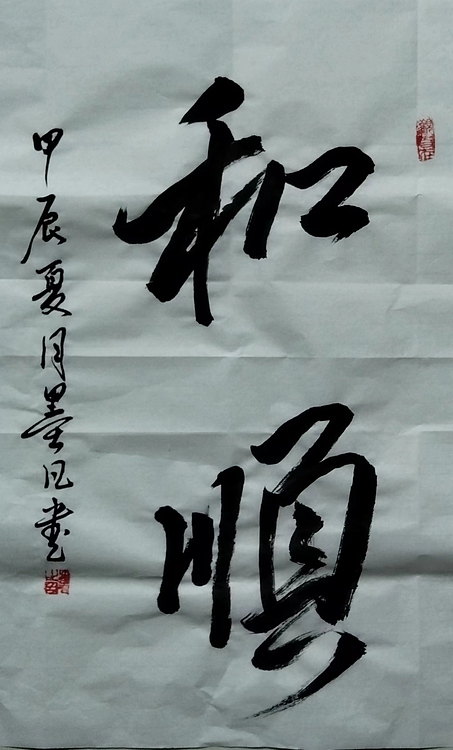 和順
甲辰夏月墨凡書